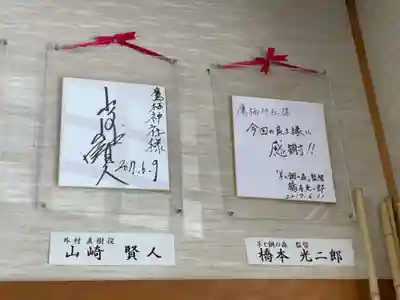 鷹栖神社様
山﨑賢人
2017.6.9
外村 直樹役
山﨑 賢人
鷹栖神社様
今回の良き縁に
感謝!!
「羊と鋼の森」監督
橋本光二郎
2017.6.11
羊と鋼の森 監督
橋本 光二郎